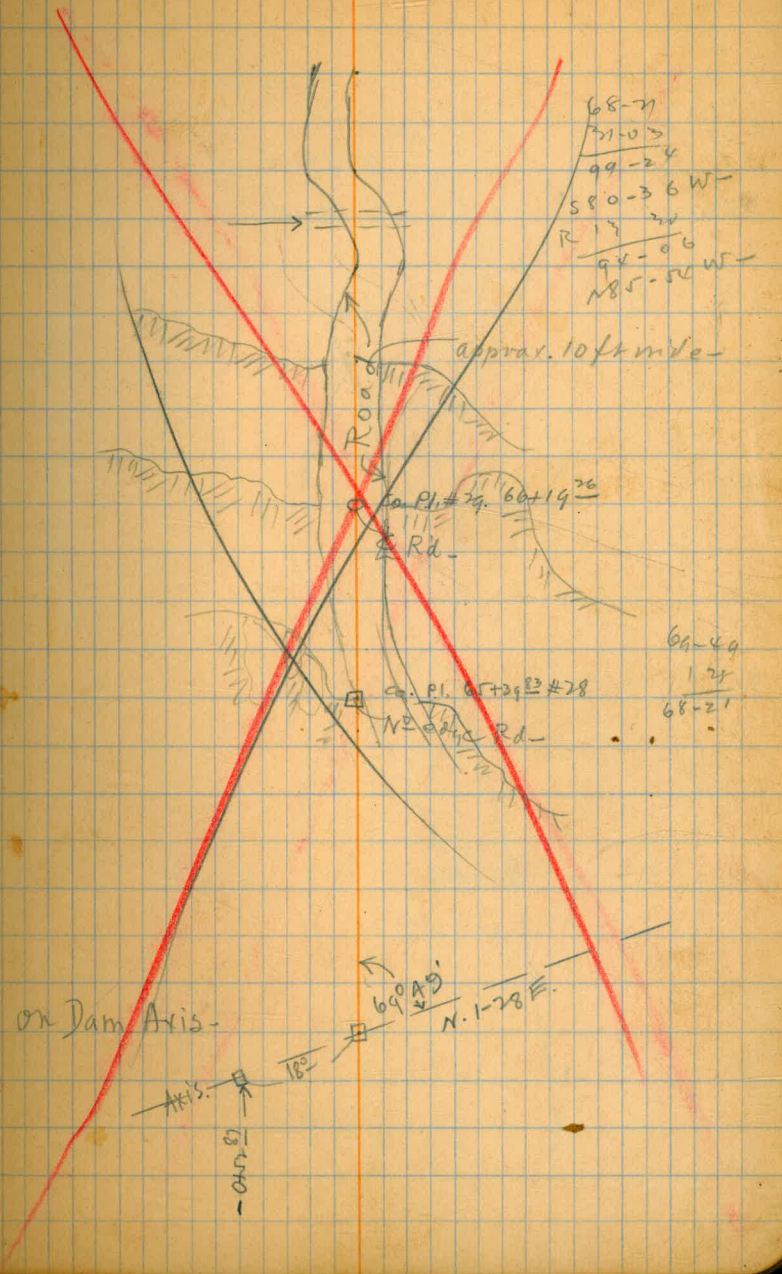 68-21
31-03
99-24
S 80-36 W-
R 13 30
94-06
N 85-54 W-
approx. 10 ft wide-
Road
Co. Pl. #29. 66+19 26
Rd-
69-49
1 28
68-21
Co. Pl. 65+39 83 #28
Rd-
69° 49'
N. 1-28 E.
on Dam Axis-
18°
Axis.